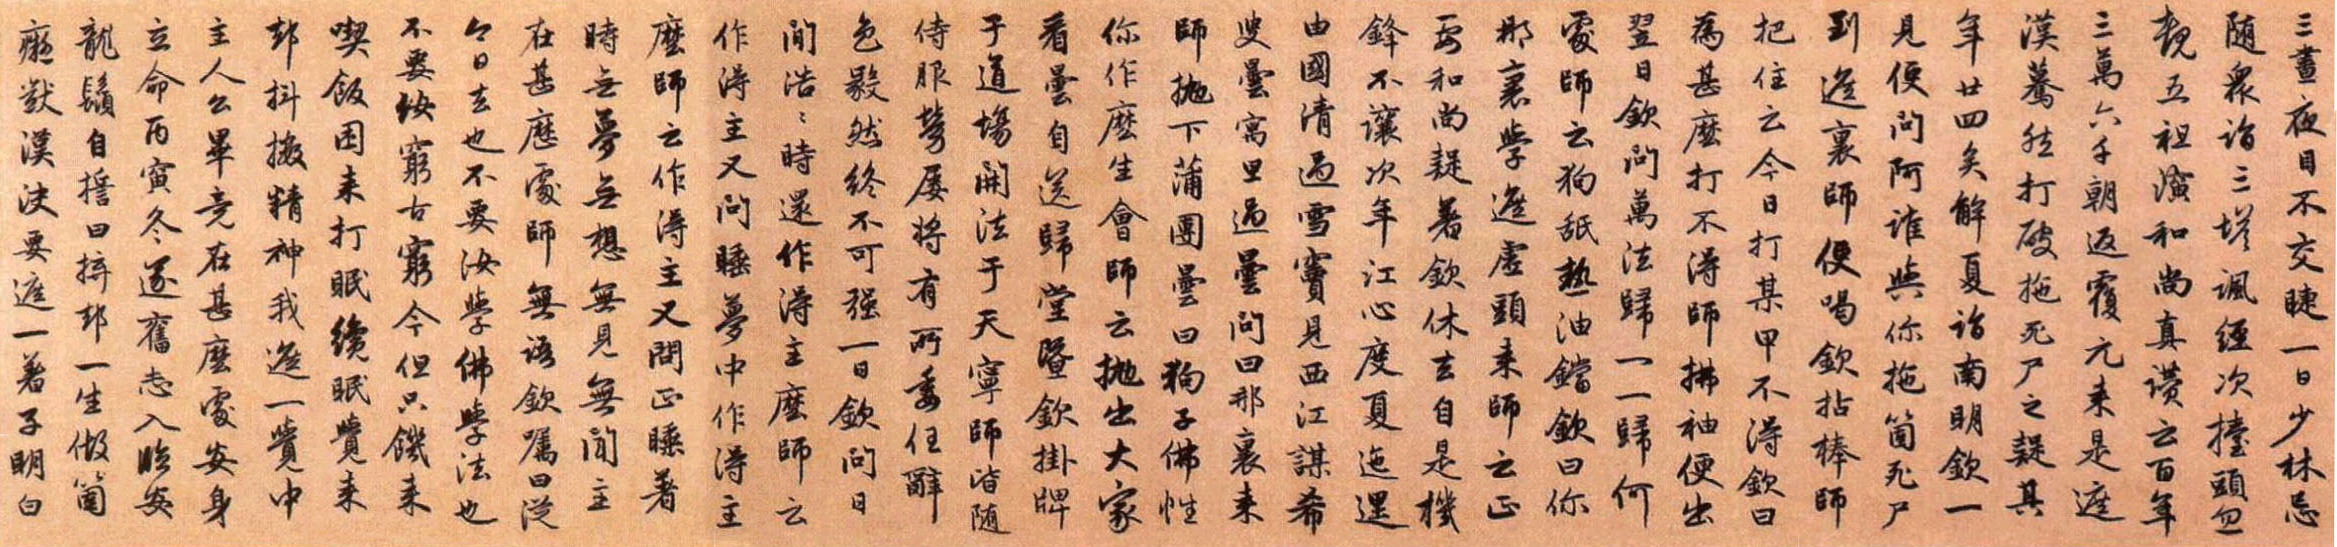 三晝夜目不交睫一日少林忌
随衆詣三塔諷經次擡頭忽
覩五祖演和尚真讚云百年
三萬六千朝返覆元来是遮
漢驀然打破拖死尸之疑其
年廿四矣解夏詣南明欽一
見便問阿誰與你拖箇死尸
到遮裏師便喝欽拈棒師
把住云今日打某甲不得欽曰
為甚麽打不得師拂袖便出
翌日欽問萬法歸一一歸何
處師云狗舐熱油鐺欽曰你
那裏學遮虚頭来師云正
要和尚疑著欽休去自是機
鋒不讓次年江心度夏迤邐
由國清過雪竇見西江謀希
叟曇寓里過曇問曰那裏来
師抛下蒲團曇曰狗子佛性
你作麽生會師云抛出大家
看曇自送歸堂暨欽掛牌
于道塲開法于天寧師皆随
侍服勞屡将有所委任辭
色毅然终不可强一日欽問日
間浩〻時還作得主麽師云
作得主又問睡夢中作得主
麽師云作得主又問正睡著
時无夢无想無見無聞主
在甚麽處師無語欽囑曰從
今日去也不要汝學佛學法也
不要汝窮古窮今但只饑来
喫飯困来打眠纔眠覺来
却抖擻精神我遮一覺中
主人公畢竟在甚麽處安身
立命丙寅冬遂奮志入臨安
龍鬚自誓曰拚却一生做箇
癡獃漢决要遮一著子明白